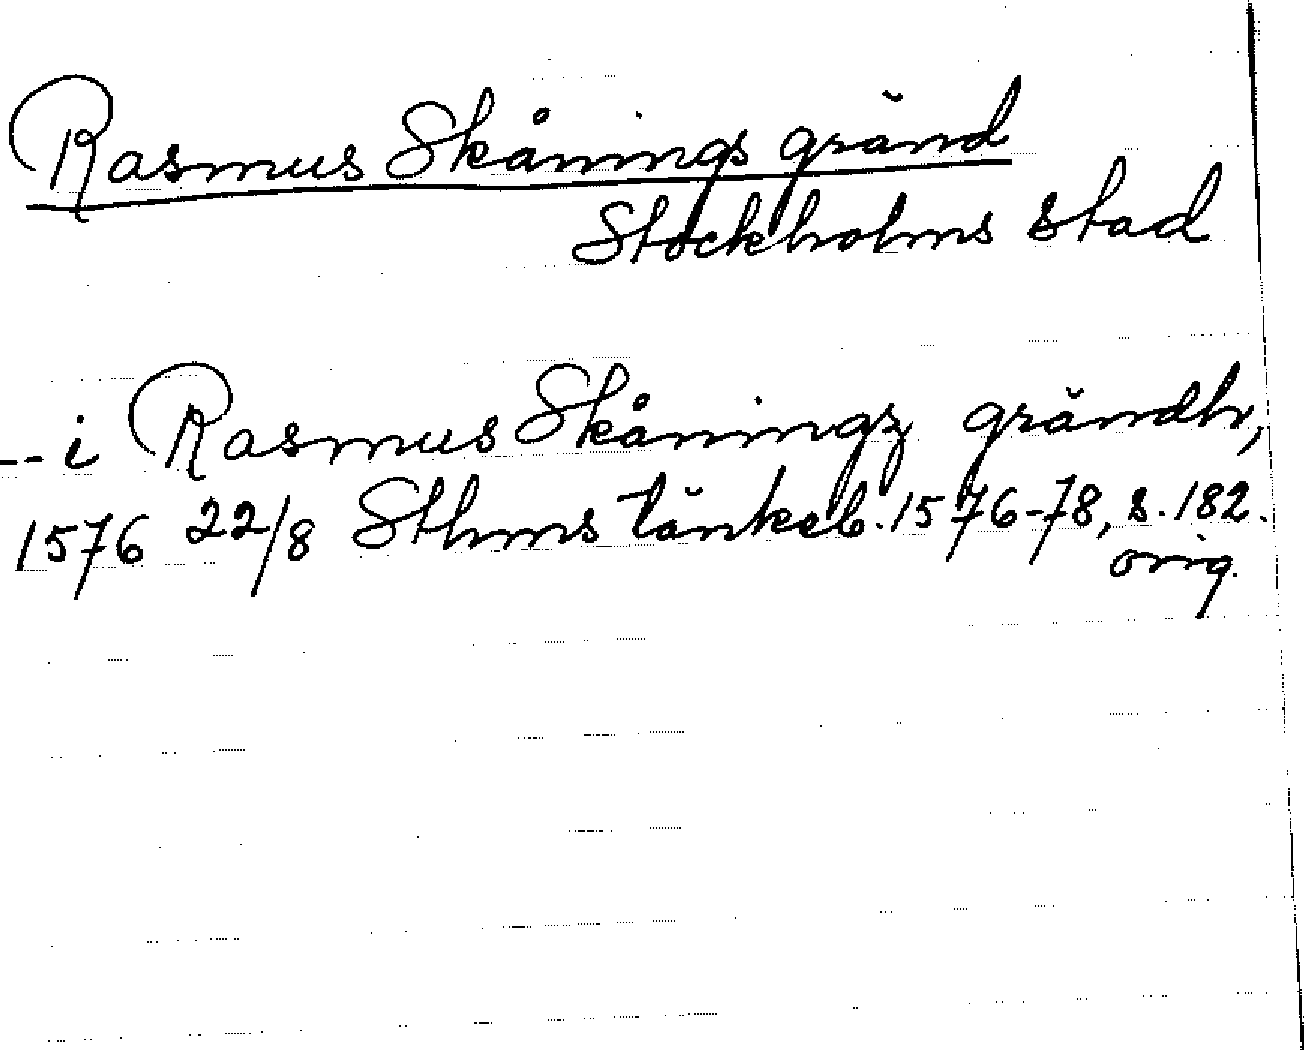 Rasmus Skånings gränd
Stockholms stad
-- i Rasmus Skåningz grändh,
1576 22/8 Sthms tänkeb. 1576-78, s. 182.
orig.